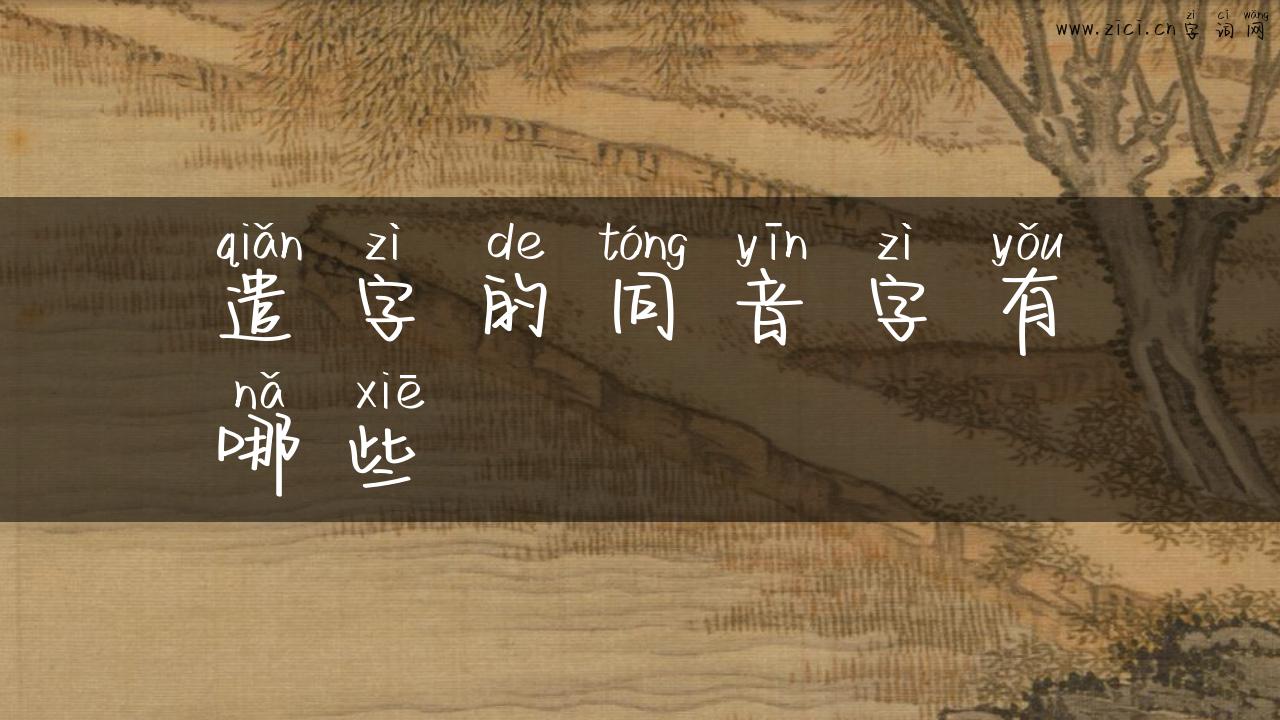 zì cí wǎng
www.zici.cn字词网
qiǎn zì de tóng yīn zì yǒu
遣字的同音字有
nǎ xiē
哪些